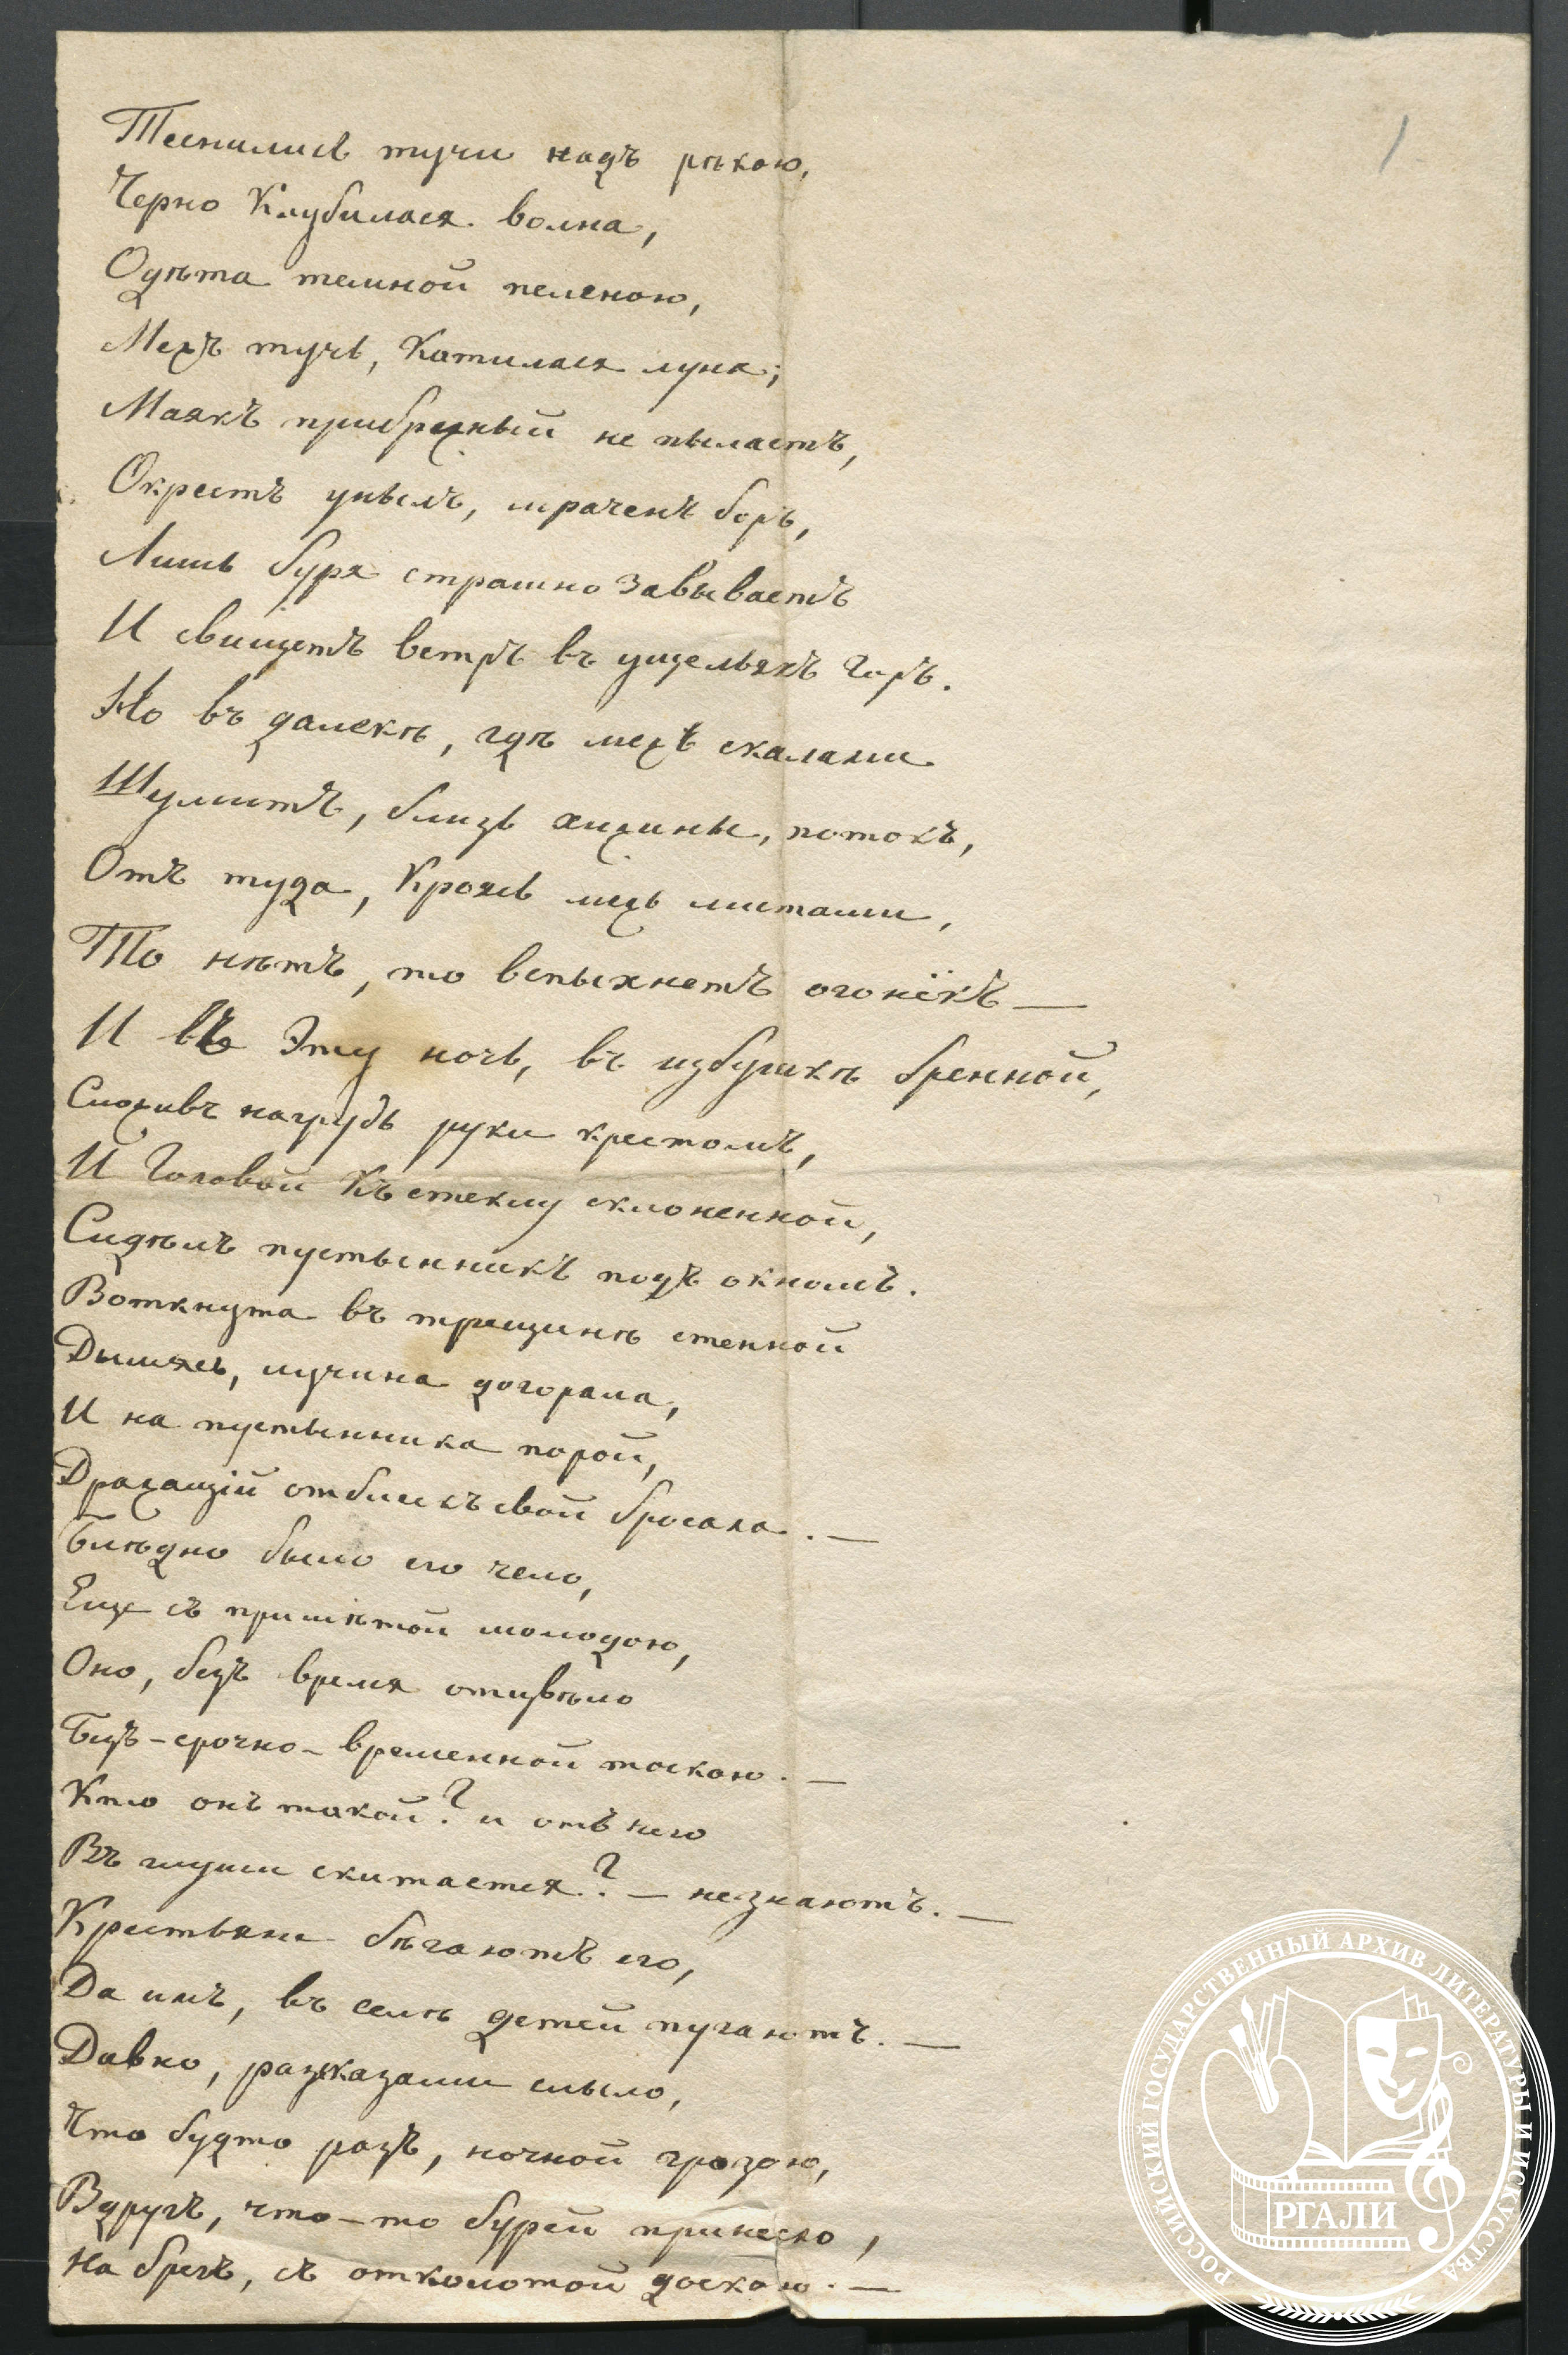 1
Теснились тучи надъ рѣкою,
Черно Клубилася волна,
Одѣта темной пеленою,
Межъ тучь, Катилася луна;
Маякъ прибрежный не пылаетъ,
Окрестъ унылъ, мраченъ боръ,
Лишь буря страшно завываетъ
И свищетъ ветръ въ ущельяхъ Горъ.
Но въ далекѣ, гдѣ межъ скалами
Шумитъ, близь хижины, потокъ,
Отъ туда, Кроясь межь листами,
То нѣтъ, то вспыхнетъ огонёкъ —
И въ Эту ночь, въ избушкѣ бренной,
Сложивъ нагрудь руки крестомъ,
И Головой Къ стеклу склоненной,
Сидѣлъ пустынникъ подъ окномъ.
Воткнута въ трещинѣ стенной
Дымясь, лучина догорала,
И на пустынника порой,
Дражащій отблискъ свой бросала. —
Блѣдно было его чело,
Еще съ примѣтой молодою,
Оно, безъ время отцвѣло
Безъ-срочно-временной тоскою. —
Кто онъ такой? и отъ чего
Въ глуши скитается? — незнаютъ. —
Крестьяне бѣгаютъ его,
Да имъ, въ селѣ детей пугаютъ. —
Давно, разсказами слыло,
Что будто разъ, ночной грозою,
Вдругъ, что-то бурей принесло,
На брегъ, съ отколотой доскою. —
РОССИЙСКИЙ ГОСУДАРСТВЕННЫЙ АРХИВ ЛИТЕРАТУРЫ И ИСКУССТВА
РГАЛИ